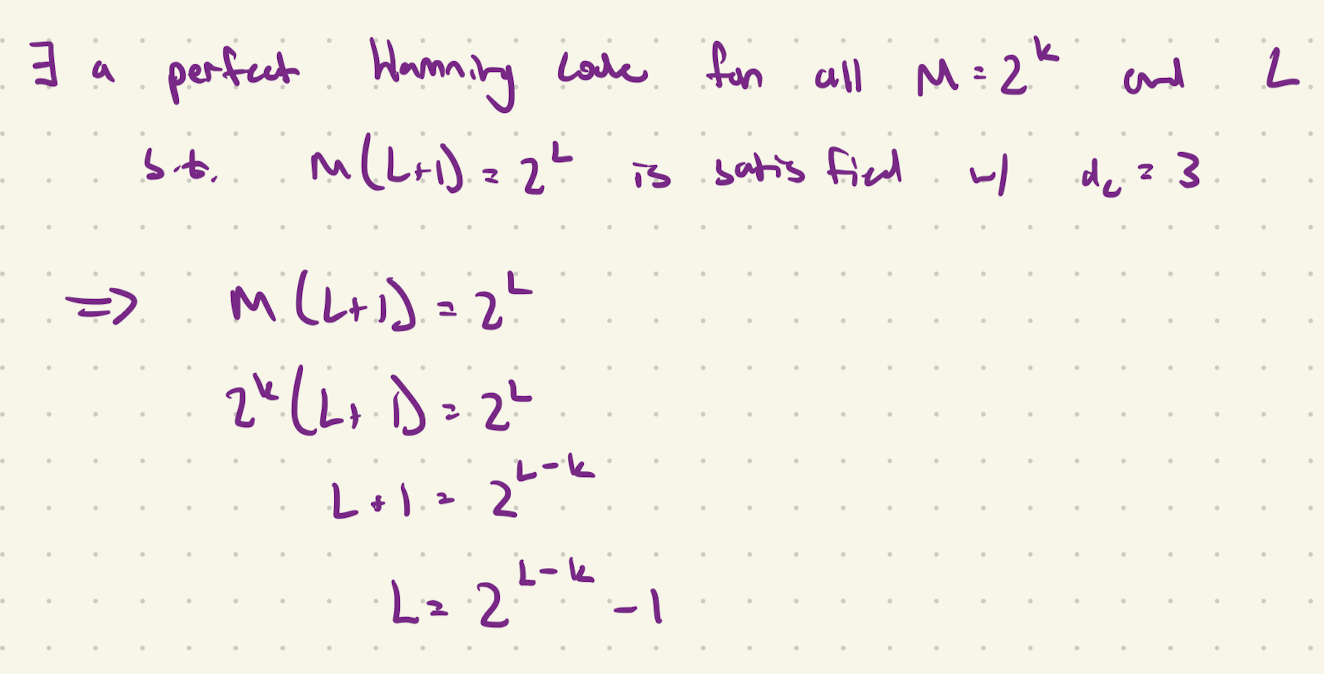 ∃ a perfect Hamming code for all M = 2^k and L
s.t. M(L+1) = 2^L is satisfied w/ d_c = 3
⇒ M(L+1) = 2^L
2^k(L+1) = 2^L
L+1 = 2^{L-k}
L = 2^{L-k} - 1